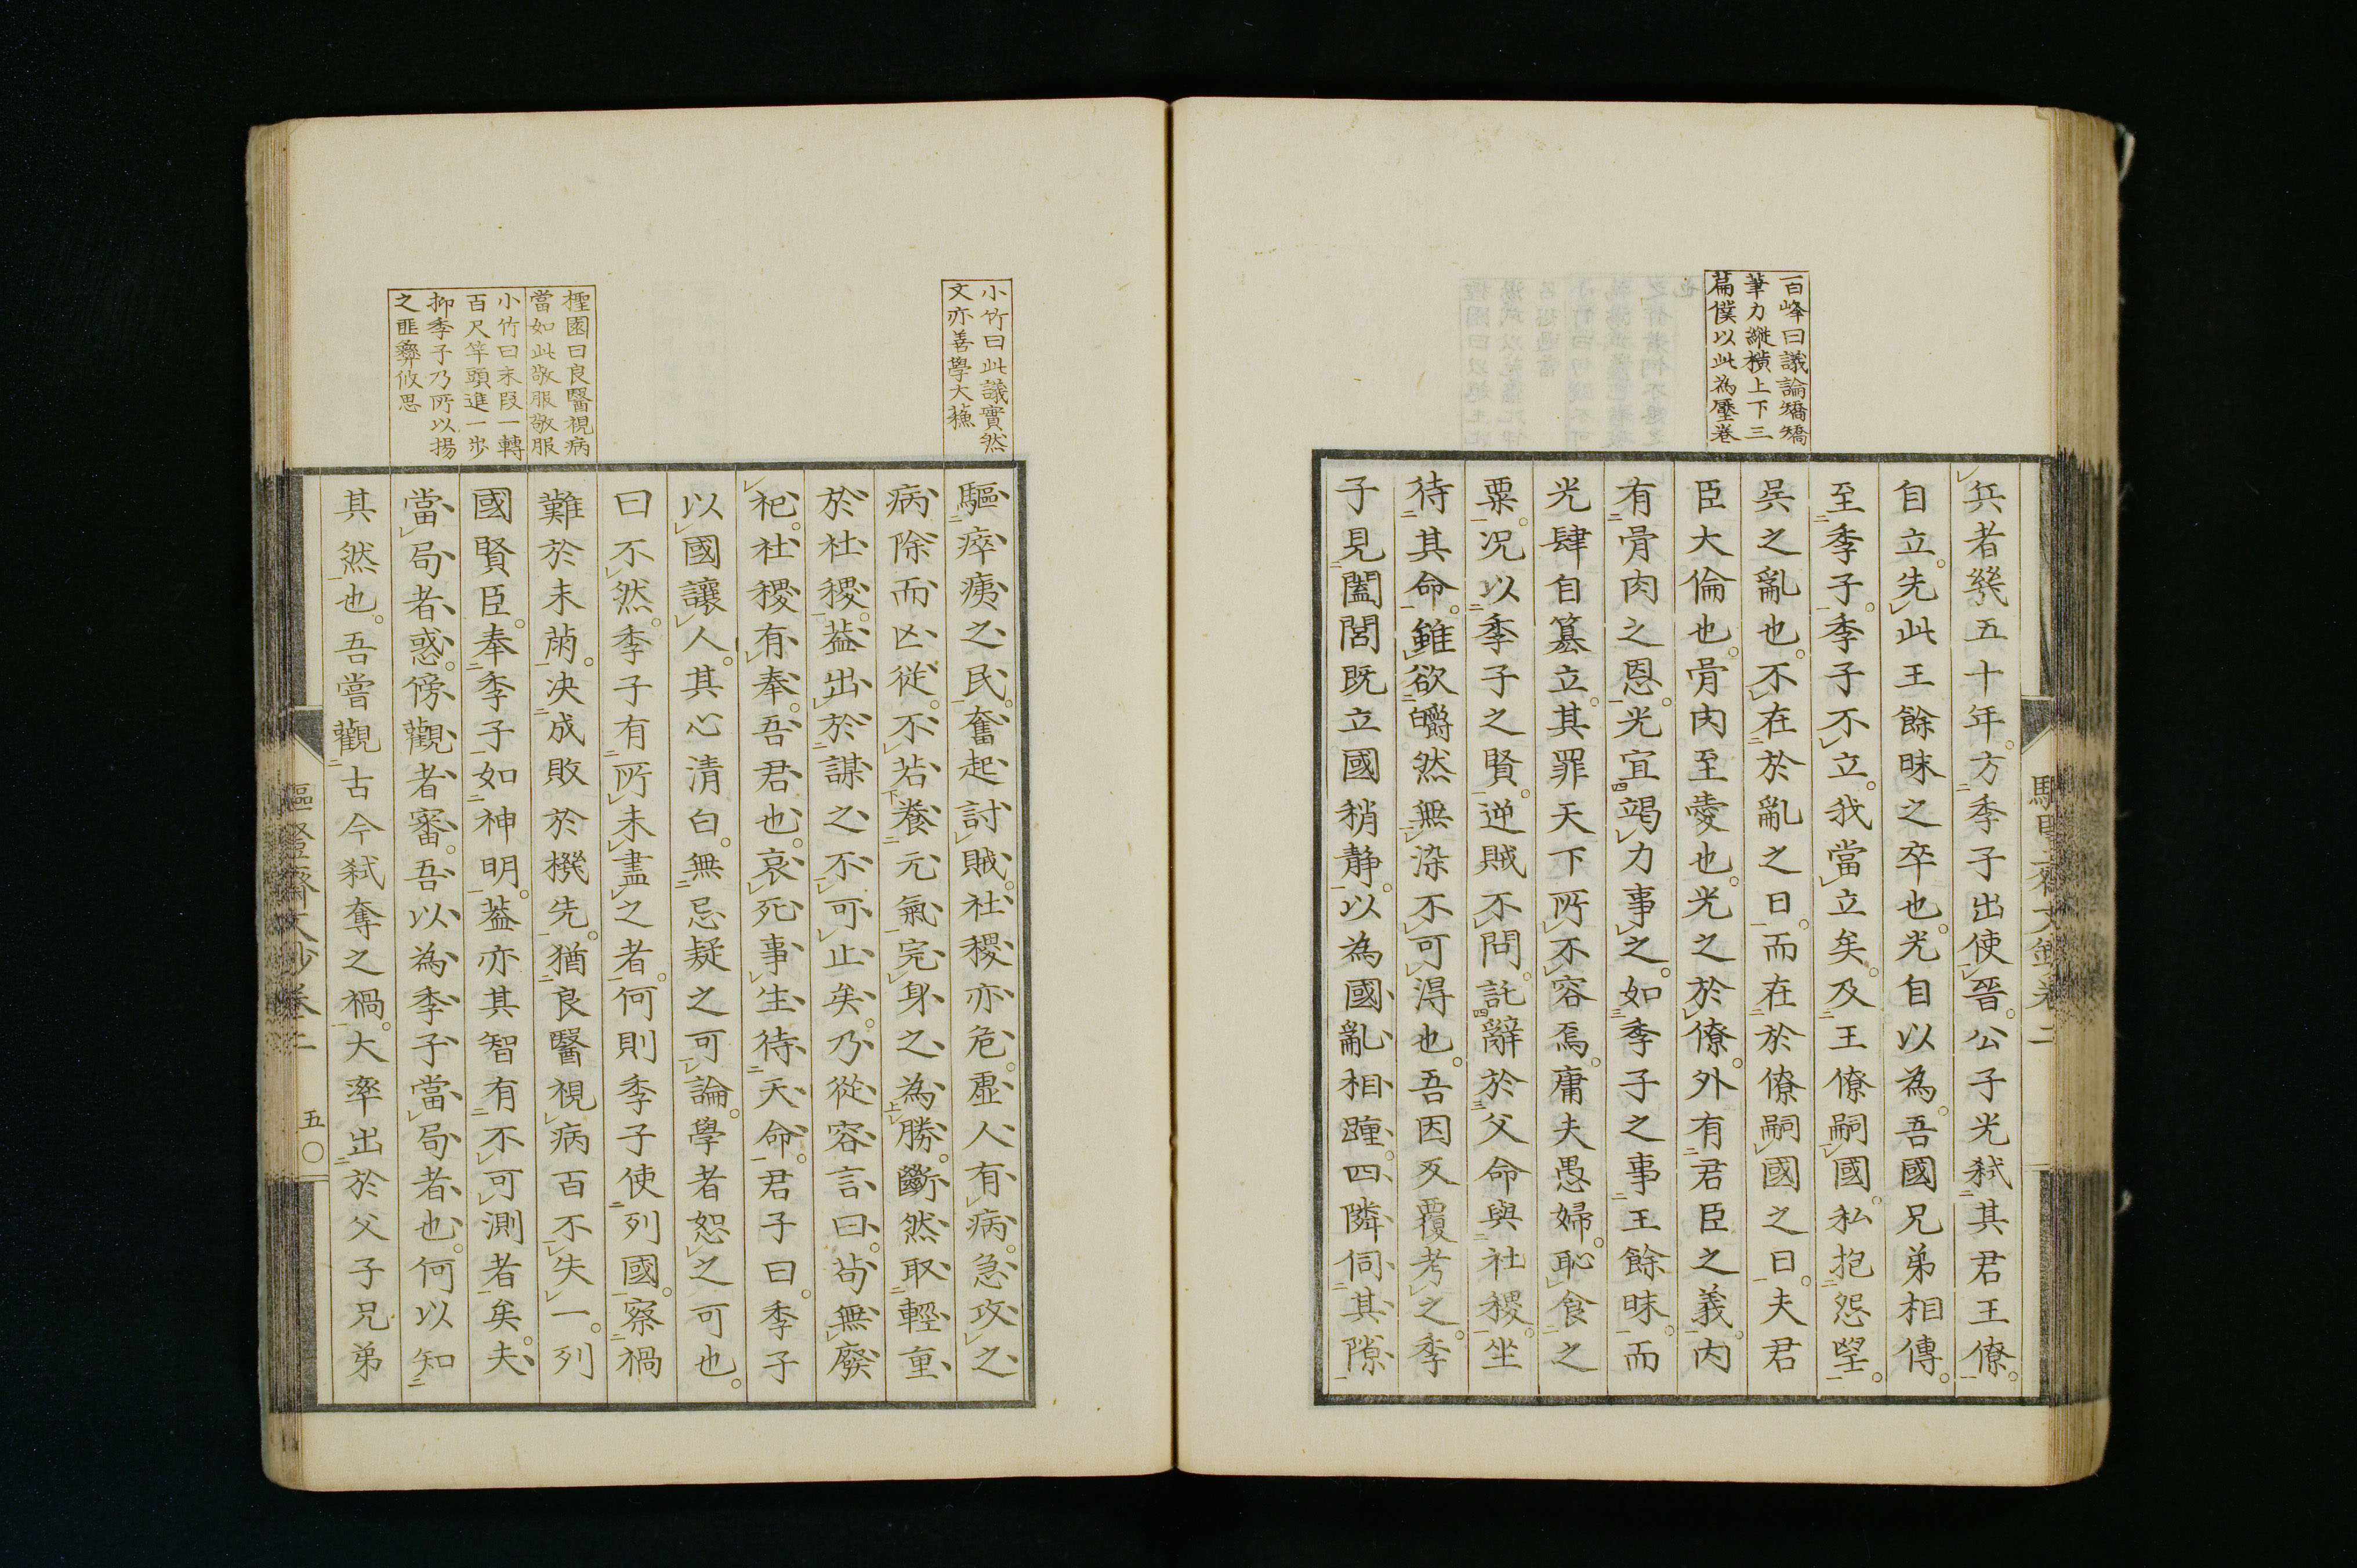 百峰曰議論矯矯
筆力縱横上下三
篇僕以此為壓卷
兵者幾五十年。方季子出使晉。公子光弑其君王僚。
自立。先此王餘昧之卒也。光自以為。吾國兄弟相傳。
至季子。季子不立。我當立矣。及王僚嗣國。私抱怨望。
吴之亂也。不在於亂之日。而在於僚嗣國之日。夫君
臣大倫也。骨肉至愛也。光之於僚。外有君臣之義。内
有骨肉之恩。光宜竭力事之。如季子之事王餘昧。而
光肆自篡立。其罪天下所不容焉。庸夫愚婦。恥食之
粟。况以季子之賢。逆賊不問。託辭於父命與社稷。坐
待其命。雖欲皭然無染。不可得也。吾因反覆考之。季
子見闔閭既立國稍静。以為國亂相踵。四隣伺其隙
小竹曰此議實然
文亦善學大蘇
驅瘁痍之民。奮起討賊。社稷亦危。虚人有病。急攻之
病除而亾從。不若養元氣完身之為勝。斷然取輕重
於社稷。葢出於謀之不可止矣。乃從容言曰。苟無廢
祀。社稷有奉。吾君也。哀死事生待天命。君子曰。季子
以國讓人。其心清白。無忌疑之可論。學者恕之可也。
曰不然。季子有所未盡之者。何則季子使列國。察禍
難於未萠。决成敗於機先。猶良醫視病百不失一。列
國賢臣。奉季子如神明。葢亦其智有不可測者矣。夫
當局者惑。傍觀者審。吾以為季子當局者也。何以知
其然也。吾嘗觀古今弑奪之禍。大率出於父子兄弟
檉園曰良醫視病
當如此敬服敬服
小竹曰末段一轉
百尺竿頭進一步
抑季子乃所以揚
之匪彜攸思
文鈔卷二
五〇